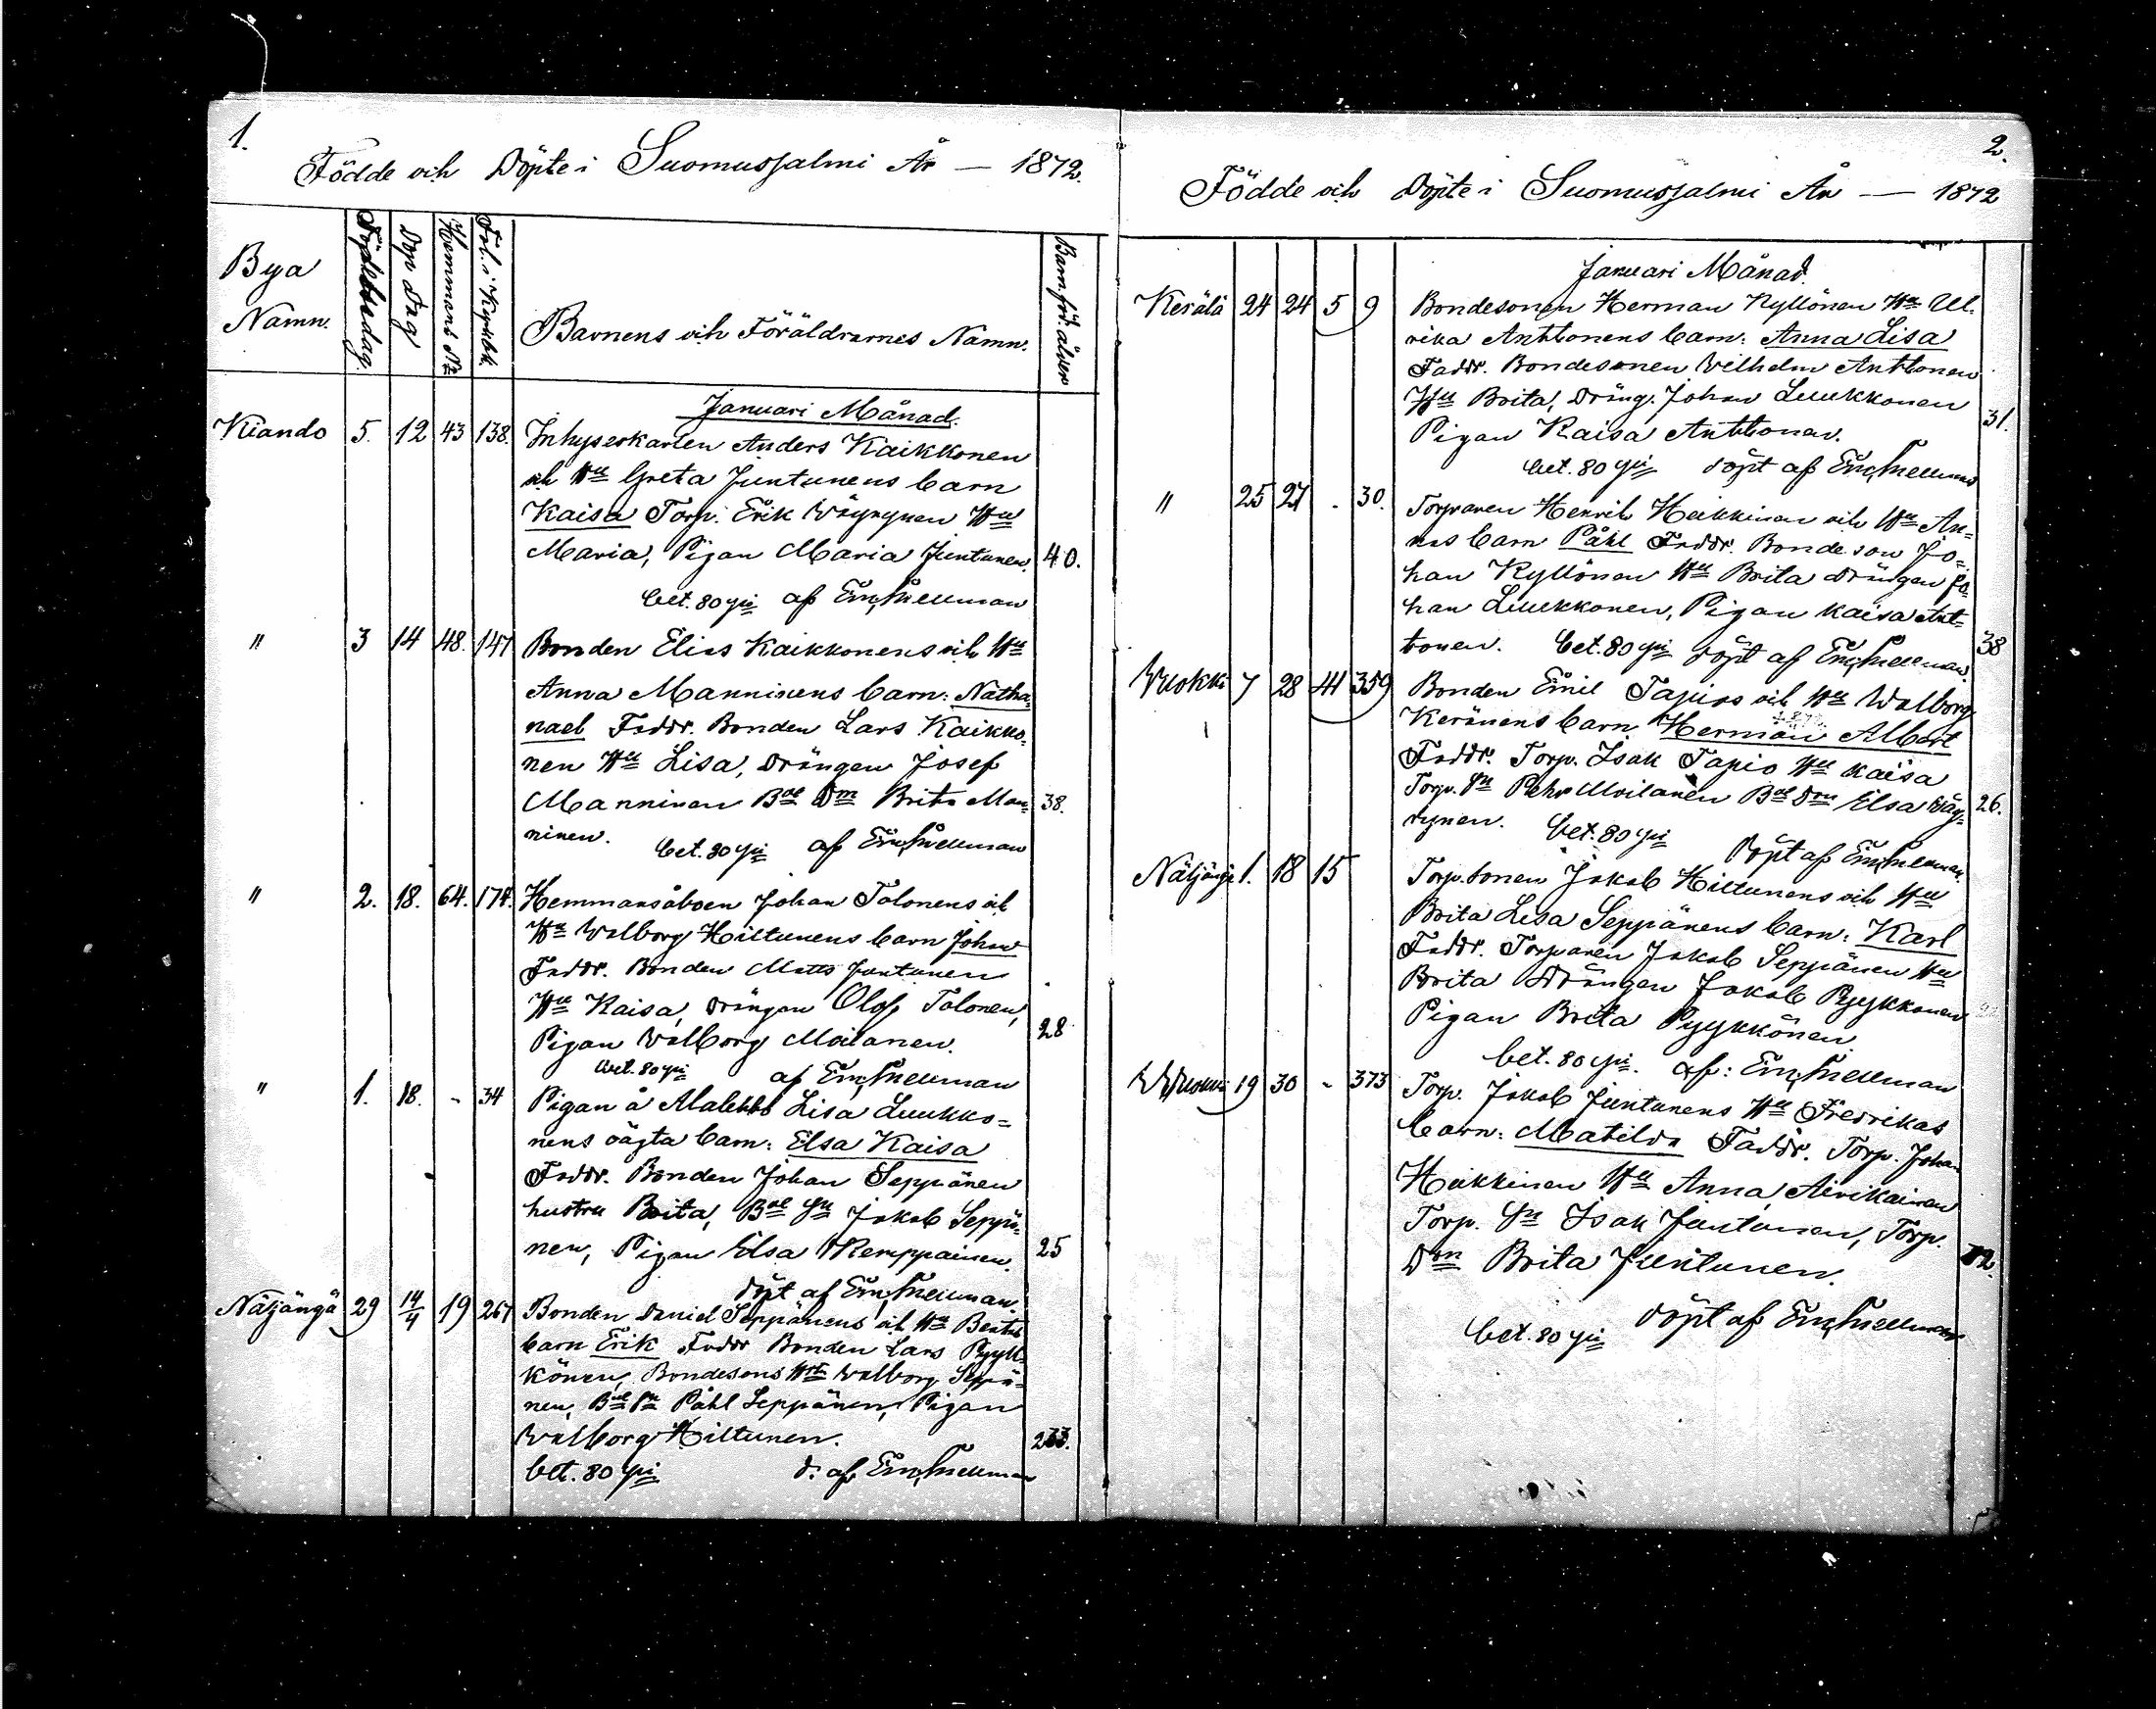 1.
Födde och Döpte i Suomussalmi År — 1872.
Bya Namn.
Födelsedag.
Dop Dag
Hemmans No
Fol. i Kyrkbk.
Barnens och Föräldrarnes Namn.
Barnaföd. ålder
Januari Månad.
Kiando 5. 12 43 138. Inhyseskarlen Anders Kaikkonen
och Hu Greta Juntunens barn
Kaisa Torp. Erik Wäyrynen Hu
Maria, Pigan Maria Juntunen. 40.
bet. 80 pi af Em. Snellman
" 3 14 48. 147 Bonden Elias Kaikkonens och Hu
Anna Manninens barn: Natha-
nael Faddr. Bonden Lars Kaikko-
nen Hu Lisa, Drängen Josef
Manninen Bde Dm Brita Man- 38.
ninen. bet. 80 pi af Em. Snellman
" 2. 18. 64. 174. Hemmansåboen Johan Tolonens och
Hu Walborg Hiltunens barn Johan
Faddr. Bonden Matts Juntunen
Hu Kaisa, Drängen Olof Tolonen,
Pigan Walborg Moilanen. 28
bet. 80 pi af Em. Snellman
" 1. 18. - 34 Pigan å Alalehto Lisa Luukko-
nens oägta barn: Elsa Kaisa
Faddr. Bonden Johan Seppänen
hustru Brita, Bde Sn Jakob Seppä-
nen, Pigan Elsa Kemppainen. 25
döpt af Em. Snellman.
Näljängä 29 14/4 19 267 Bonden David Seppänens och Hu Beatas
barn Erik Faddr Bonden Lars Pyyk-
könen, Bondesons Hu Walborg Seppä-
nen, Bde Sn Påhl Seppänen, Pigan
Walborg Hiltunen. 233.
bet. 80 pi d. af Em. Snellman
2.
Födde och Döpte i Suomussalmi År — 1872
Januari Månad.
Kerälä 24 24 5 9 Bondesonen Herman Kyllönen Hu Ul-
rika Anttonens barn: Anna Lisa
Faddr. Bondesonen Vilhelm Anttonen
Hu Brita, Dräng. Johan Luukkonen
Pigan Kaisa Anttonen. 31.
bet. 80 pi döpt af Em. Snellman
" 25 27 . 30. Torparen Henrik Heikkinen och Hu An-
nas barn Påhl Faddr. Bondeson Jo-
han Kyllönen Hu Brita Drängen Jo-
han Luukkonen, Pigan Kaisa Ant-
tonen. bet. 80 pi döpt af Em. Snellman. 38
Wuokki 7 28 41 359 Bonden Emil Tapios och Hu Walborg
Keränens barn Herman Albert
Faddr. Torp. Isak Tapio Hu Kaisa
Torp. Sn Pehr Moilanen Bde Dm Elsa Wäy- 26.
rynen. bet. 80 pi Döpt af Em. Snellman.
Näljängä 1. 18 15 Torp. sonen Jakob Hiltunens och Hu
Brita Lisa Seppänens barn: Karl
Faddr. Torparen Jakob Seppänen Hu
Brita Drängen Jakob Pyykkönen
Pigan Brita Pyykkönen.
bet. 80 pi. af: Em. Snellman
19 30 - 373 Torp. Jakob Juntunens Hu Fredrikas
barn: Matilda Faddr. Torp. Johan
Heikkinen Hu Anna
Torp. Sn Isak Juntunen, Torp.
Dm Brita Juntunen.
döpt af Em. Snellman
bet. 80 pi